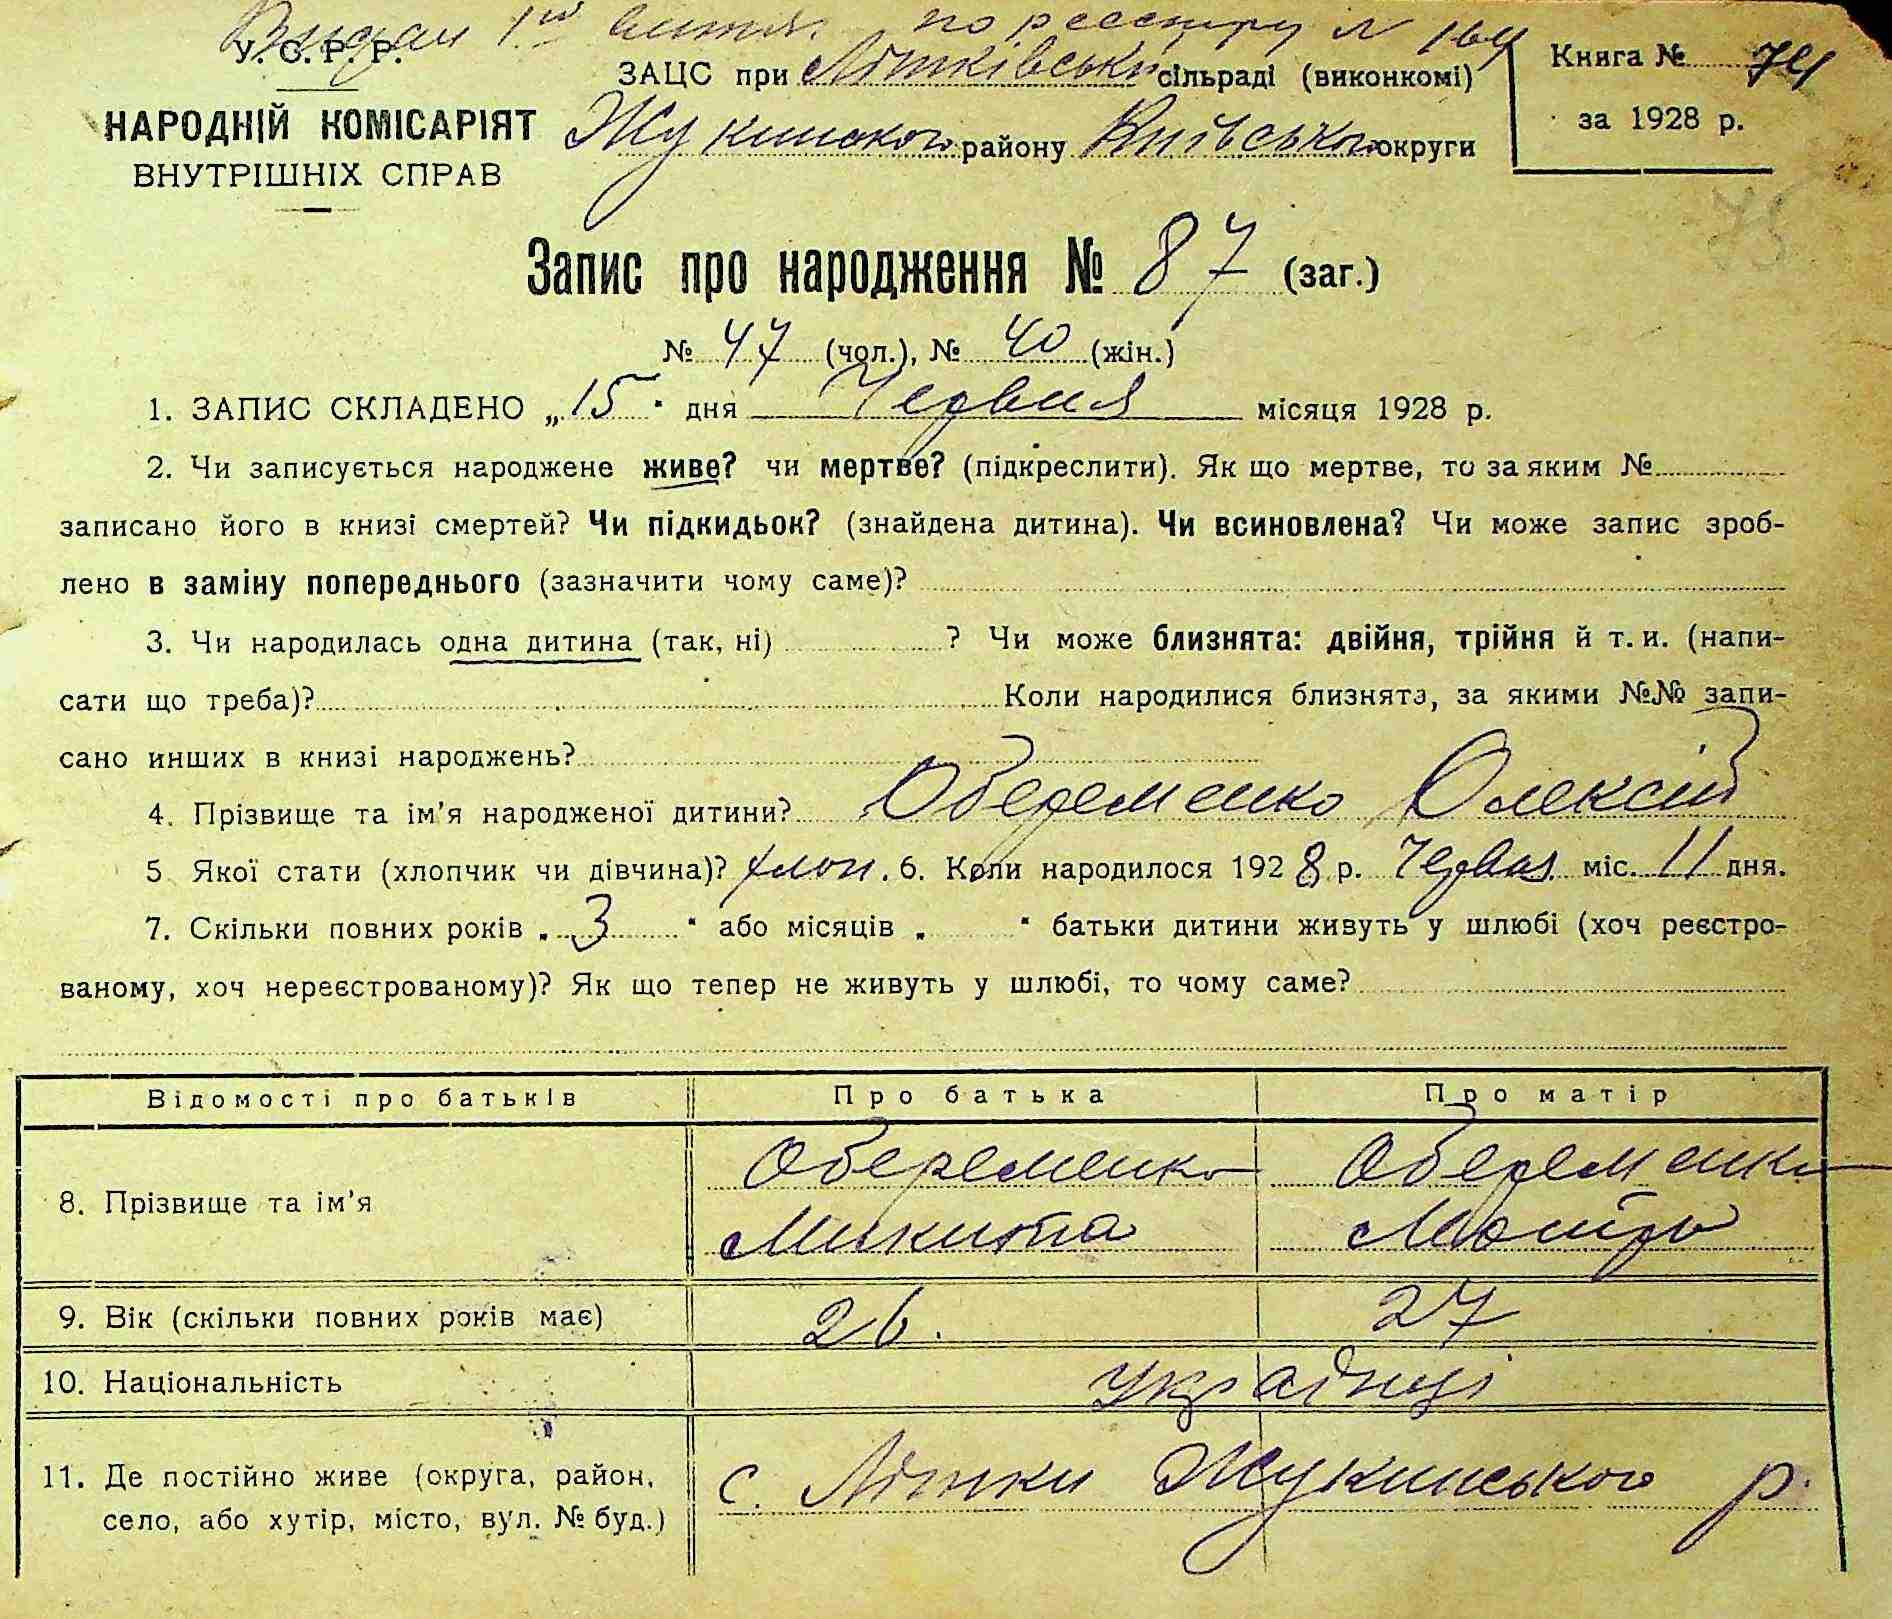 Видан 1ий витяг. по реестру N 164
У. С. Р. Р.
НАРОДНІЙ КОМІСАРІЯТ
ВНУТРІШНІХ СПРАВ
ЗАЦС при Літківській сільраді (виконкомі)
Жукинського району Київської округи
Книга № 74
за 1928 р.
75
Запис про народження № 87 (заг.)
№ 47 (чол.), № 40 (жін.)
1. ЗАПИС СКЛАДЕНО „15" дня Червня місяця 1928 р.
2. Чи записується народжене живе? чи мертве? (підкреслити). Як що мертве, то за яким №
записано його в книзі смертей? Чи підкидьок? (знайдена дитина). Чи всиновлена? Чи може запис зроб-
лено в заміну попереднього (зазначити чому саме)?
3. Чи народилась одна дитина (так, ні) ? Чи може близнята: двійня, трійня й т. и. (напи-
сати що треба)? Коли народилися близнята, за якими №№ запи-
сано инших в книзі народжень?
4. Прізвище та ім'я народженої дитини? Обеременко Олексій
5 Якої стати (хлопчик чи дівчина)? хлоп. 6. Коли народилося 1928 р. Червня міс. 11 дня.
7. Скільки повних років „ 3 " або місяців „ " батьки дитини живуть у шлюбі (хоч реєстро-
ваному, хоч нереєстрованому)? Як що тепер не живуть у шлюбі, то чому саме?
Відомості про батьків Про батька Про матір
8. Прізвище та ім'я Обеременко Микита Обеременко Мотря
9. Вік (скільки повних років має) 26. 27
10. Національність Українці
11. Де постійно живе (округа, район, село, або хутір, місто, вул. № буд.) с. Літки Жукинського р.